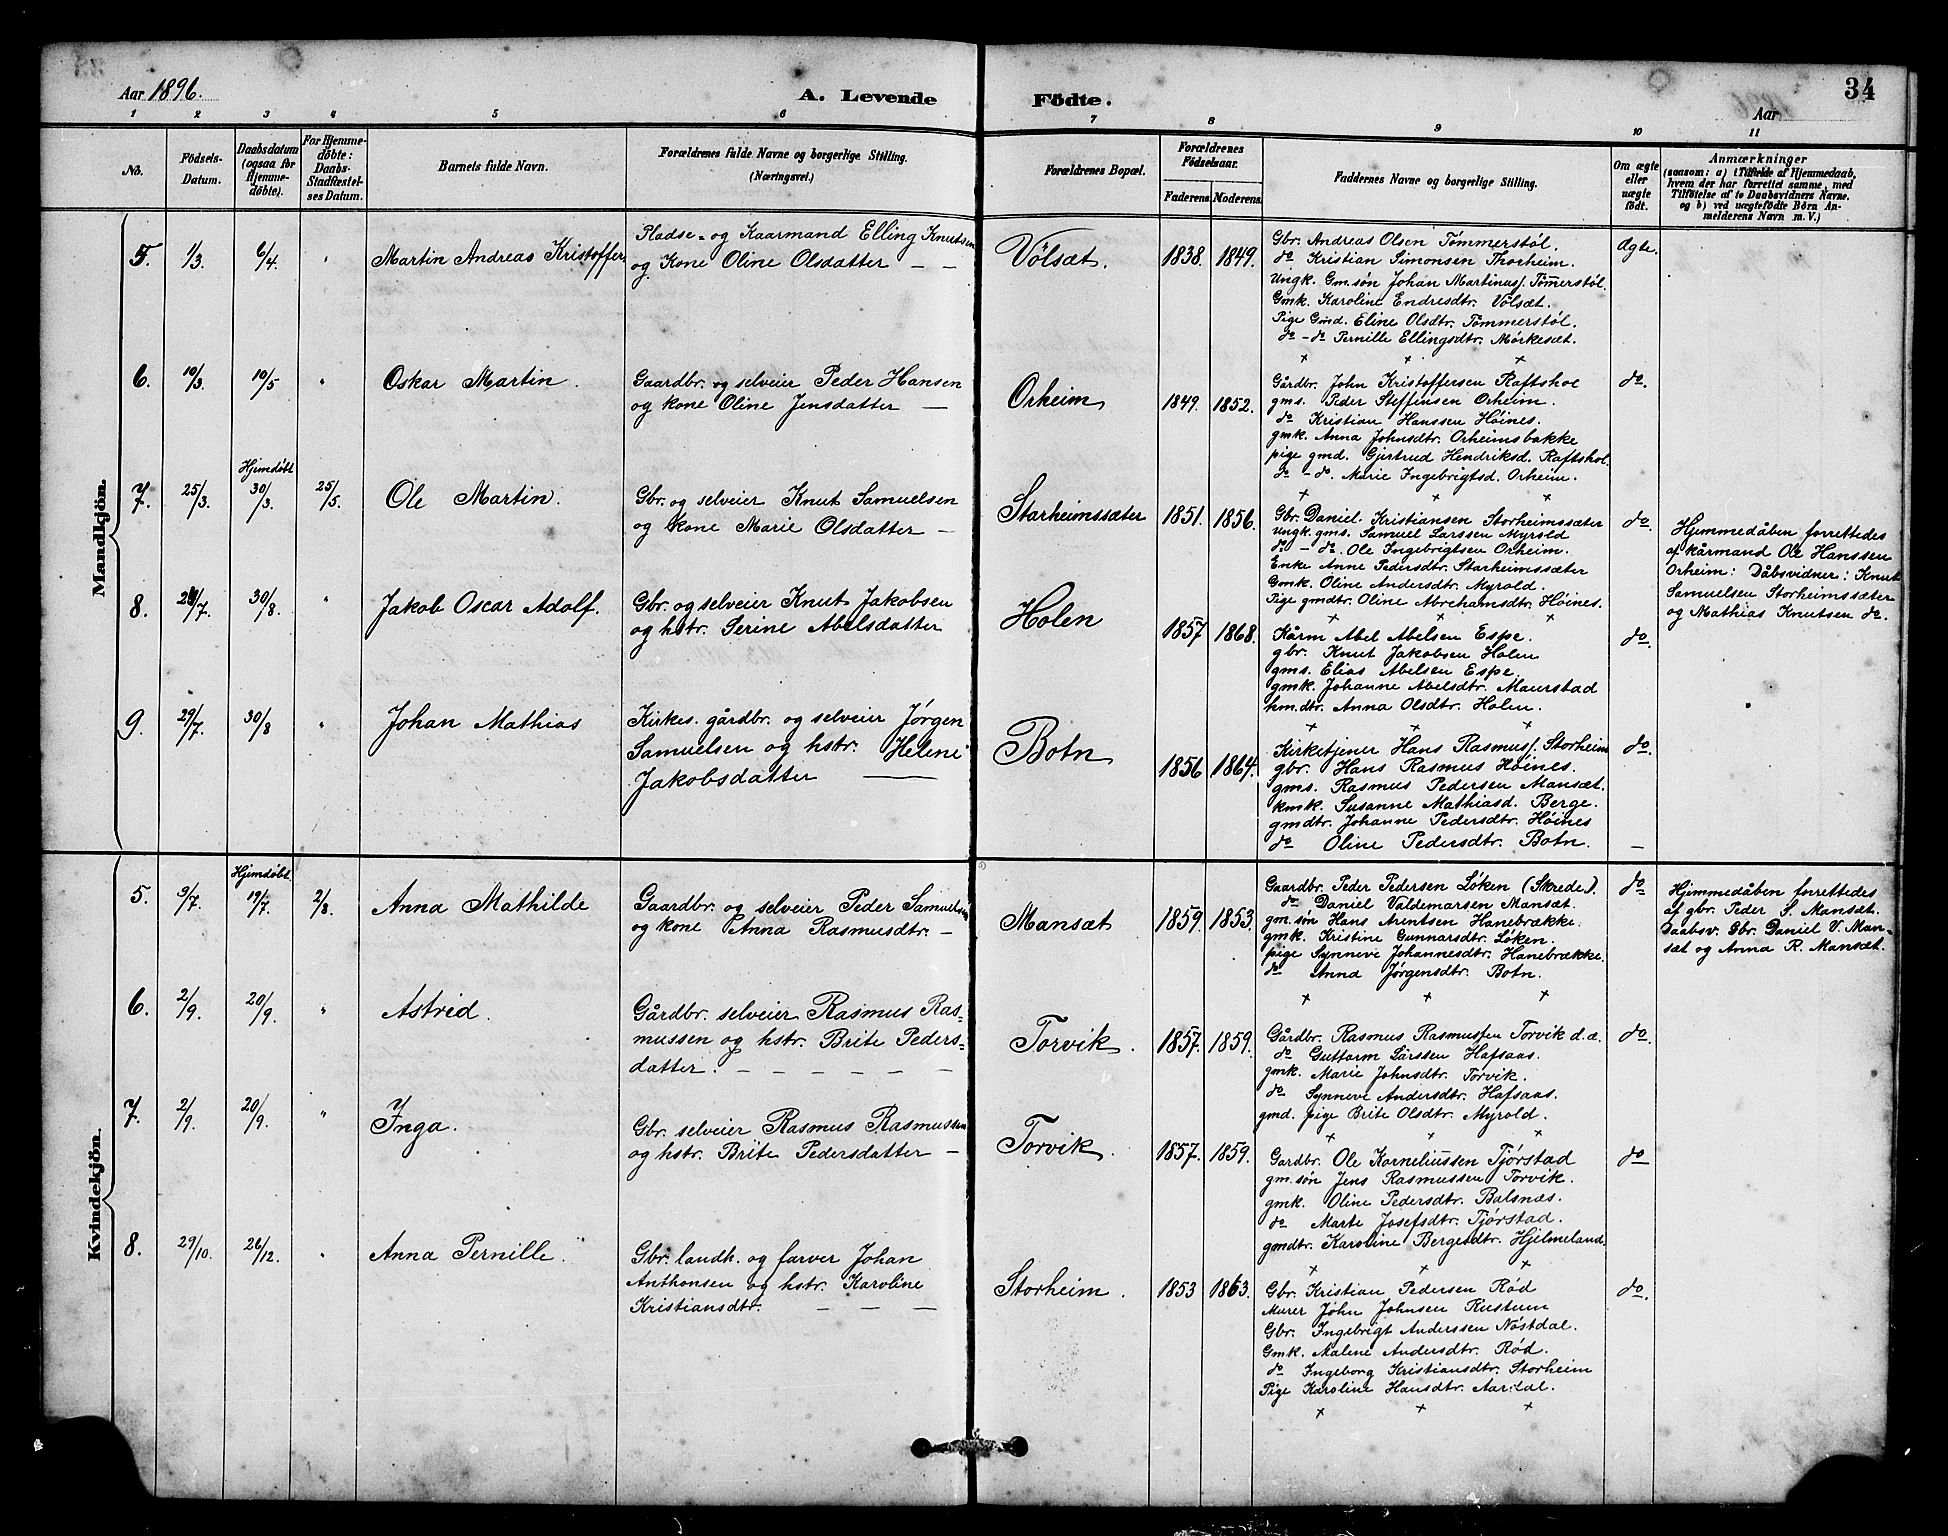 Aar 1896.
A. Levende Födte.
34
Aar
1 2 3 4 5 6 7 8 9 10 11
No.
Födsels-Datum.
Daabsdatum (ogsaa for Hjemmedöbte).
For Hjemmedöbte: Daabs-Stadfæstelses Datum.
Barnets fulde Navn.
Forældrenes fulde Navne og borgerlige Stilling. (Næringsvei.)
Forældrenes Bopæl.
Forældrenes Födselsaar.
Faderens. Moderens.
Faddernes Navne og borgerlige Stilling.
Om ægte eller uægte födt.
Anmærkninger
(saasom: a) i Tilfælde af Hjemmedaab,
hvem der har forrettet samme, med
Tilföielse af to Daabsvidners Navne,
og b) ved uægtefödte Börn An-
melderens Navn m. V.)
Mandkjön.
5. 1/3. 6/4 " Martin Andreas Kristoffer
Pladse- og Kaarmand Elling Knutsen
og Kone Oline Olsdatter — —
Völsæt. 1838. 1849.
Gbr. Andreas Olsen Tømmerstöl.
do Kristian Simonsen Thorheim.
Ungk. Gm.søn Johan Martinus. Tömmerstöl.
Gmk. Karoline Endresdtr. Völsæt.
Pige Gmd. Eline Olsdtr. Tömmerstöl.
do - do Pernille Ellingsdtr. Mørkesæt.
x x x
Ægte.
6. 10/3. 10/5 " Oskar Martin.
Gaardbr. og selveier Peder Hansen
og kone Oline Jensdatter —
Orheim 1849. 1852.
Gårdbr. John Kristoffersen Raftshol
gms. Peder Steffensen Orheim.
do Kristian Hanssen Høines.
gmk. Anna Johnsdtr. Orheimsbakke
pige gmd. Gjertrud Hendriksd. Raftshol.
do - do. Marie Ingebrigtsd. Orheim.
x x x
do.
7. 25/3. Hjemdöbt 30/3. 25/5. Ole Martin.
Gbr. og selveier Knut Samuelsen
og Kone Marie Olsdatter —
Starheimssæter 1851. 1856.
Gbr. Daniel Kristiansen Storheimssæter
Ungk. gms. Samuel Larssen Myrold
do - do. Ole Ingebrigtsen Orheim.
Enke Anne Pedersdtr. Starheimssæter
Gmk. Oline Andersdtr. Myrold.
Pige gmdtr. Oline Abrehamsdtr. Høines.
x x x
do.
Hjemmedåben forrettedes
af kårmand Ole Hanssen
Orheim: Dåbsvidner: Knut
Samuelsen Storheimssæter
og Mathias Knutsen do.
8. /7. 30/8. " Jakob Oscar Adolf.
Gbr. og selveier Knut Jakobsen
og hstr. Serine Abelsdatter
Holen 1857 1868.
Kårm Abel Abelsen Espe.
gbr. Knut Jakobsen Holen
gms. Elias Abelsen Espe
gmk. Johanne Abelsdtr. Maurstad
hm.dtr. Anna Olsdtr. Holen.
x x x
do.
9. 29/7. 30/8 " Johan Mathias
Kirkes. gårdbr. og selveier Jørgen
Samuelsen og hstr. Helene
Jakobsdatter —
Botn 1856 1864.
Kirketjener Hans Rasmus. Storheim
gbr. Hans Rasmus Høines.
gms. Rasmus Pedersen Mansæt.
kmk. Susanne Mathiasd. Berge.
gmdtr. Johanne Pedersdtr. Høines
do Oline Pedersdtr. Botn.
do.
Kvindekjön.
5. 9/7. Hjemdöbt. 19/7. 2/8. Anna Mathilde
Gaardbr. og selveier Peder Samuelsen
og kone Anna Rasmusdtr. —
Mansæt 1859. 1853.
Gaardbr. Peder Pedersen Løken (Skrede).
do Daniel Valdemarsen Mansæt.
gm. søn Hans Arintsen Hanebrække.
gmk. Kristine Gunnarsdtr. Løken.
pige Synneve Johannesdtr. Hanebrække.
do Anna Jørgensdtr. Botn.
x x x
do
Hjemmedåben forrettedes
af gbr. Peder S. Mansæt.
Daabsv. Gbr. Daniel V. Man-
sæt og Anna R. Mansæt.
6. 2/9. 20/9. " Astrid.
Gårdbr. selveier Rasmus Ras-
mussen og hstr. Brite Peders-
datter. — — — — —
Torvik. 1857. 1859.
Gårdbr. Rasmus Rasmussen Torvik d.æ.
do Guttorm Larssen Hafsaas.
gmk. Marie Johnsdtr. Torvik.
do Synneve Andersdtr. Hafsaas.
gmd. pige Brite Olsdtr. Myrold.
x x x
do.
7. 2/9. 20/9. " Inga.
Gbr. selveier Rasmus Rasmussen
og hstr. Brite Pedersdatter —
Torvik. 1857. 1859.
Gardbr. Ole Korneliussen Tjørstad
gm. søn Jens Rasmussen Torvik.
gmk. Oline Pedersdtr. Balsnæs.
do Marte Josefsdtr. Tjørstad.
gmdtr. Karoline Bergesdtr. Hjelmeland.
x x x
do
8. 29/10. 26/12. " Anna Pernille.
Gbr. landh. og farver Johan
Anthonsen og hstr. Karoline
Kristiansdtr. — — —
Storheim. 1853 1863.
Gbr. Kristian Pedersen Rød
Murer John Johnsen Rustum
Gbr. Ingebrigt Anderssen Nøstdal.
Gmk. Malene Andersdtr. Rød.
do Ingeborg Kristiansdtr. Storheim
Pige Karoline Hansdtr. Aardal.
x x x
do.